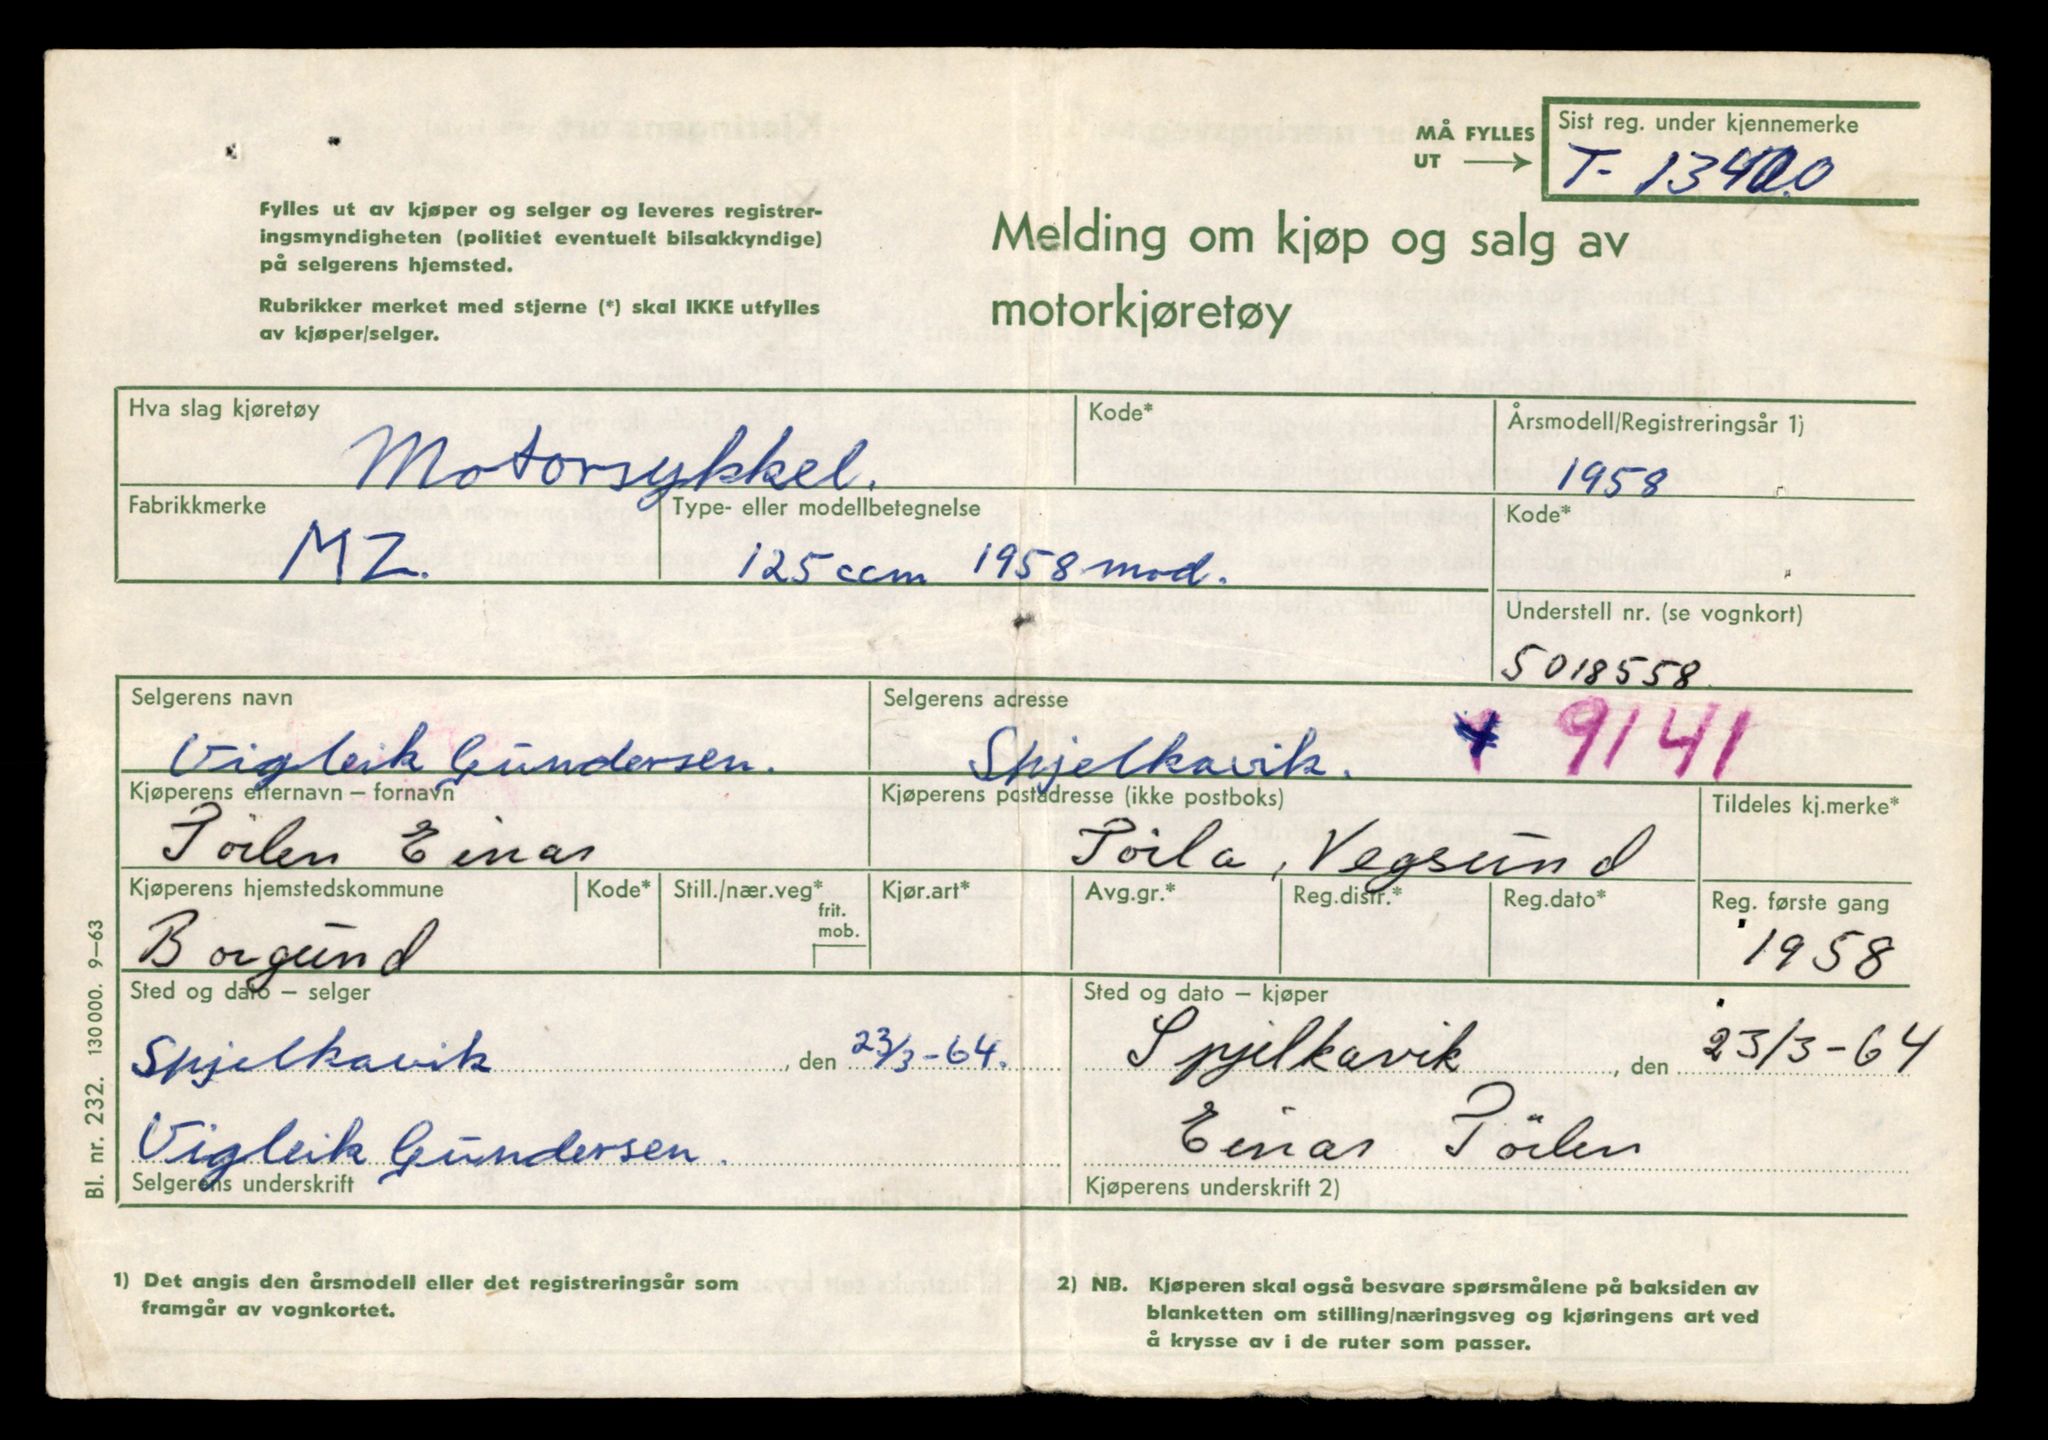 MÅ FYLLES
UT
Sist reg. under kjennemerke
T- 13400
Fylles ut av kjøper og selger og leveres registrer-
ingsmyndigheten (politiet eventuelt bilsakkyndige)
på selgerens hjemsted.
Rubrikker merket med stjerne (*) skal IKKE utfylles
av kjøper/selger.
Melding om kjøp og salg av
motorkjøretøy
Hva slag kjøretøy
Motorsykkel.
Kode*
Årsmodell/Registreringsår 1)
1958
Fabrikkmerke
MZ.
Type- eller modellbetegnelse
125 ccm 1958 mod.
Kode*
Understell nr. (se vognkort)
5018558
Selgerens navn
Vigleik Gundersen.
Selgerens adresse
Spjelkavik.
9141
Kjøperens etternavn – fornavn
Pöilen Einar
Kjøperens postadresse (ikke postboks)
Pöila, Vegsund
Tildeles kj.merke*
Kjøperens hjemstedskommune
Borgund
Kode*
Still./nær.veg*
frit.
mob.
Kjør.art*
Avg.gr.*
Reg.distr.*
Reg.dato*
Reg. første gang
1958
Sted og dato – selger
Spjelkavik, den 23/3-64.
Sted og dato – kjøper
Spjelkavik, den 23/3-64
Vigleik Gundersen.
Selgerens underskrift
Einar Pöilen
Kjøperens underskrift 2)
Bl. nr. 232. 130 000. 9–63
1) Det angis den årsmodell eller det registreringsår som
framgår av vognkortet.
2) NB. Kjøperen skal også besvare spørsmålene på baksiden av
blanketten om stilling/næringsveg og kjøringens art ved
å krysse av i de ruter som passer.